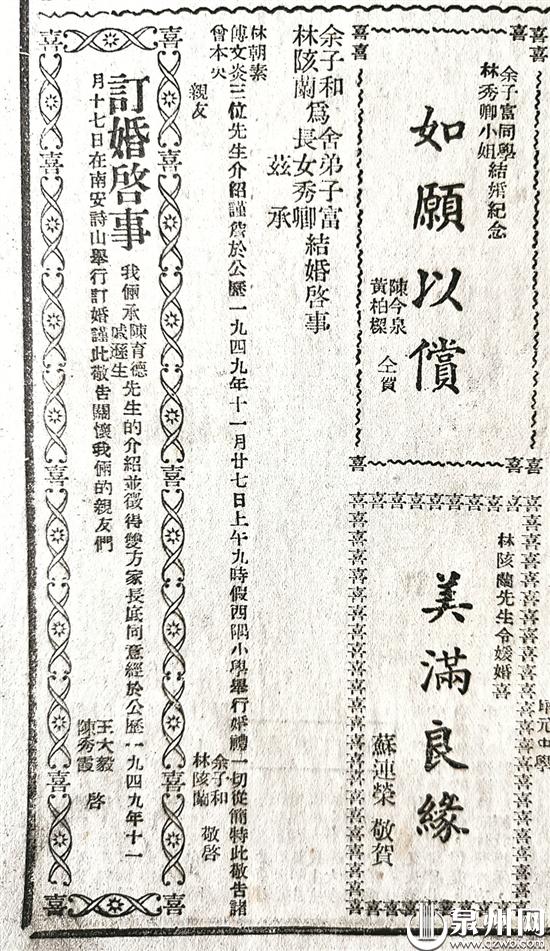 余子富同學
林秀卿小姐
結婚紀念
如願以償
陳今泉
黃柏樑
仝賀
林陔蘭先生令媛婚喜
美滿良緣
蘇連榮 敬賀
余子和為舍弟子富
林陔蘭為長女秀卿
結婚啓事
茲承
林朝素
傅文炎
曾本央
三位先生介紹謹詹於公歷一九四九年十一月廿七日上午九時假西隅小學舉行婚禮一切從簡特此敬告諸
親友
余子和
林陔蘭
敬啓
訂婚啓事
我倆承陳育德
戚遜生
先生的介紹並徵得雙方家長底同意經於公歷一九四九年十一
月十七日在南安詩山舉行訂婚謹此敬告關懷我倆的親友們
王大毅
陳秀霞
啓
泉州网
www.qzwb.com